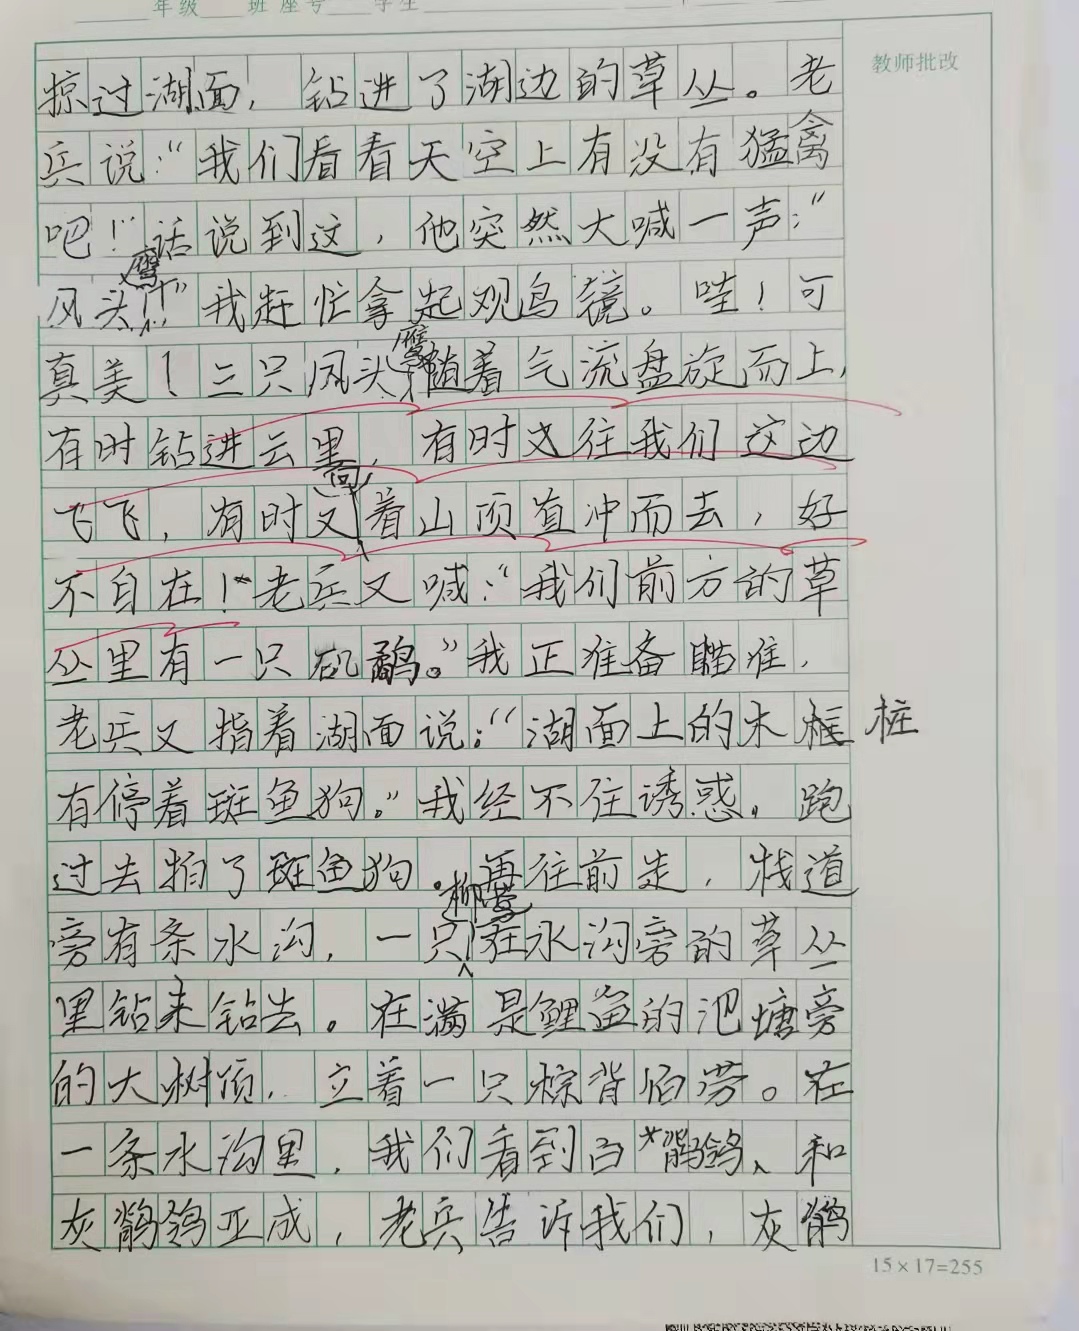 年级 班 座号 学生
教师批改
掠过湖面，钻进了湖边的草丛。老
兵说：“我们看看天空上有没有猛禽
吧！”话说到这，他突然大喊一声：“
凤头鹰！”我赶忙拿起观鸟镜。哇！可
真美！三只凤头鹰随着气流盘旋而上，
有时钻进云里，有时又往我们这边
飞飞，有时又向着山顶直冲而去，好
不自在！老兵又喊：“我们前方的草
丛里有一只矶鹬。”我正准备瞄准，
老兵又指着湖面说：“湖面上的木框 桩
有停着斑鱼狗。”我经不住诱惑，跑
过去拍了斑鱼狗。再往前走，栈道
旁有条水沟，一只柳莺在水沟旁的草丛
里钻来钻去。在满是鲤鱼的池塘旁
的大树顶，立着一只棕背伯劳。在
一条水沟里，我们看到白鹡鸰、和
灰鹡鸰亚成，老兵告诉我们，灰鹡
15×17=255